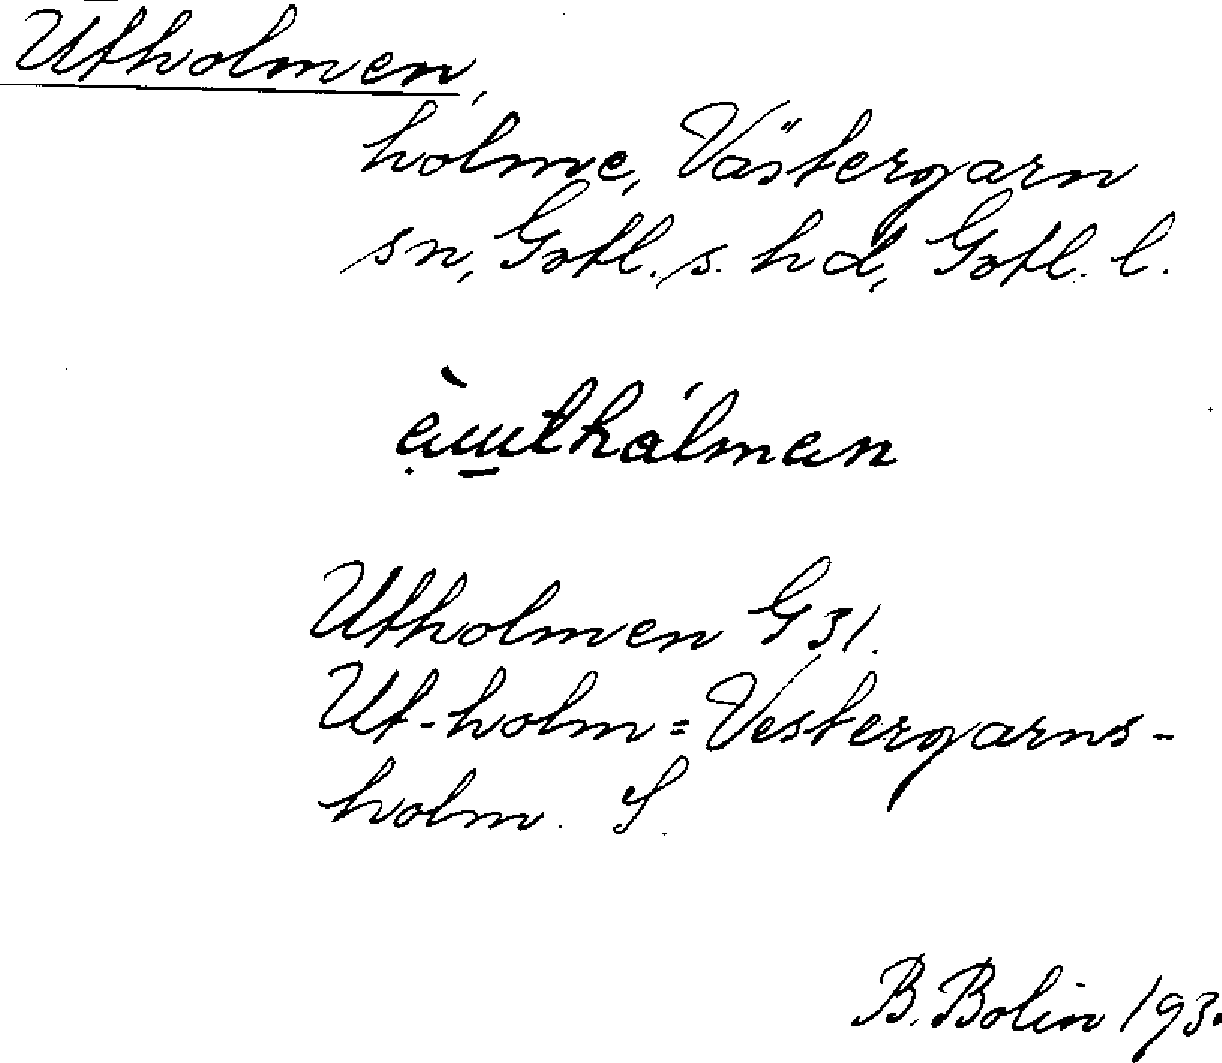 Utholmen,
holme, Västergarn
sn, Gotl. s. hd, Gotl. l.
Utholmen G 31.
Ut-holm = Vestergarns-
holm. S.
B. Bolin 193